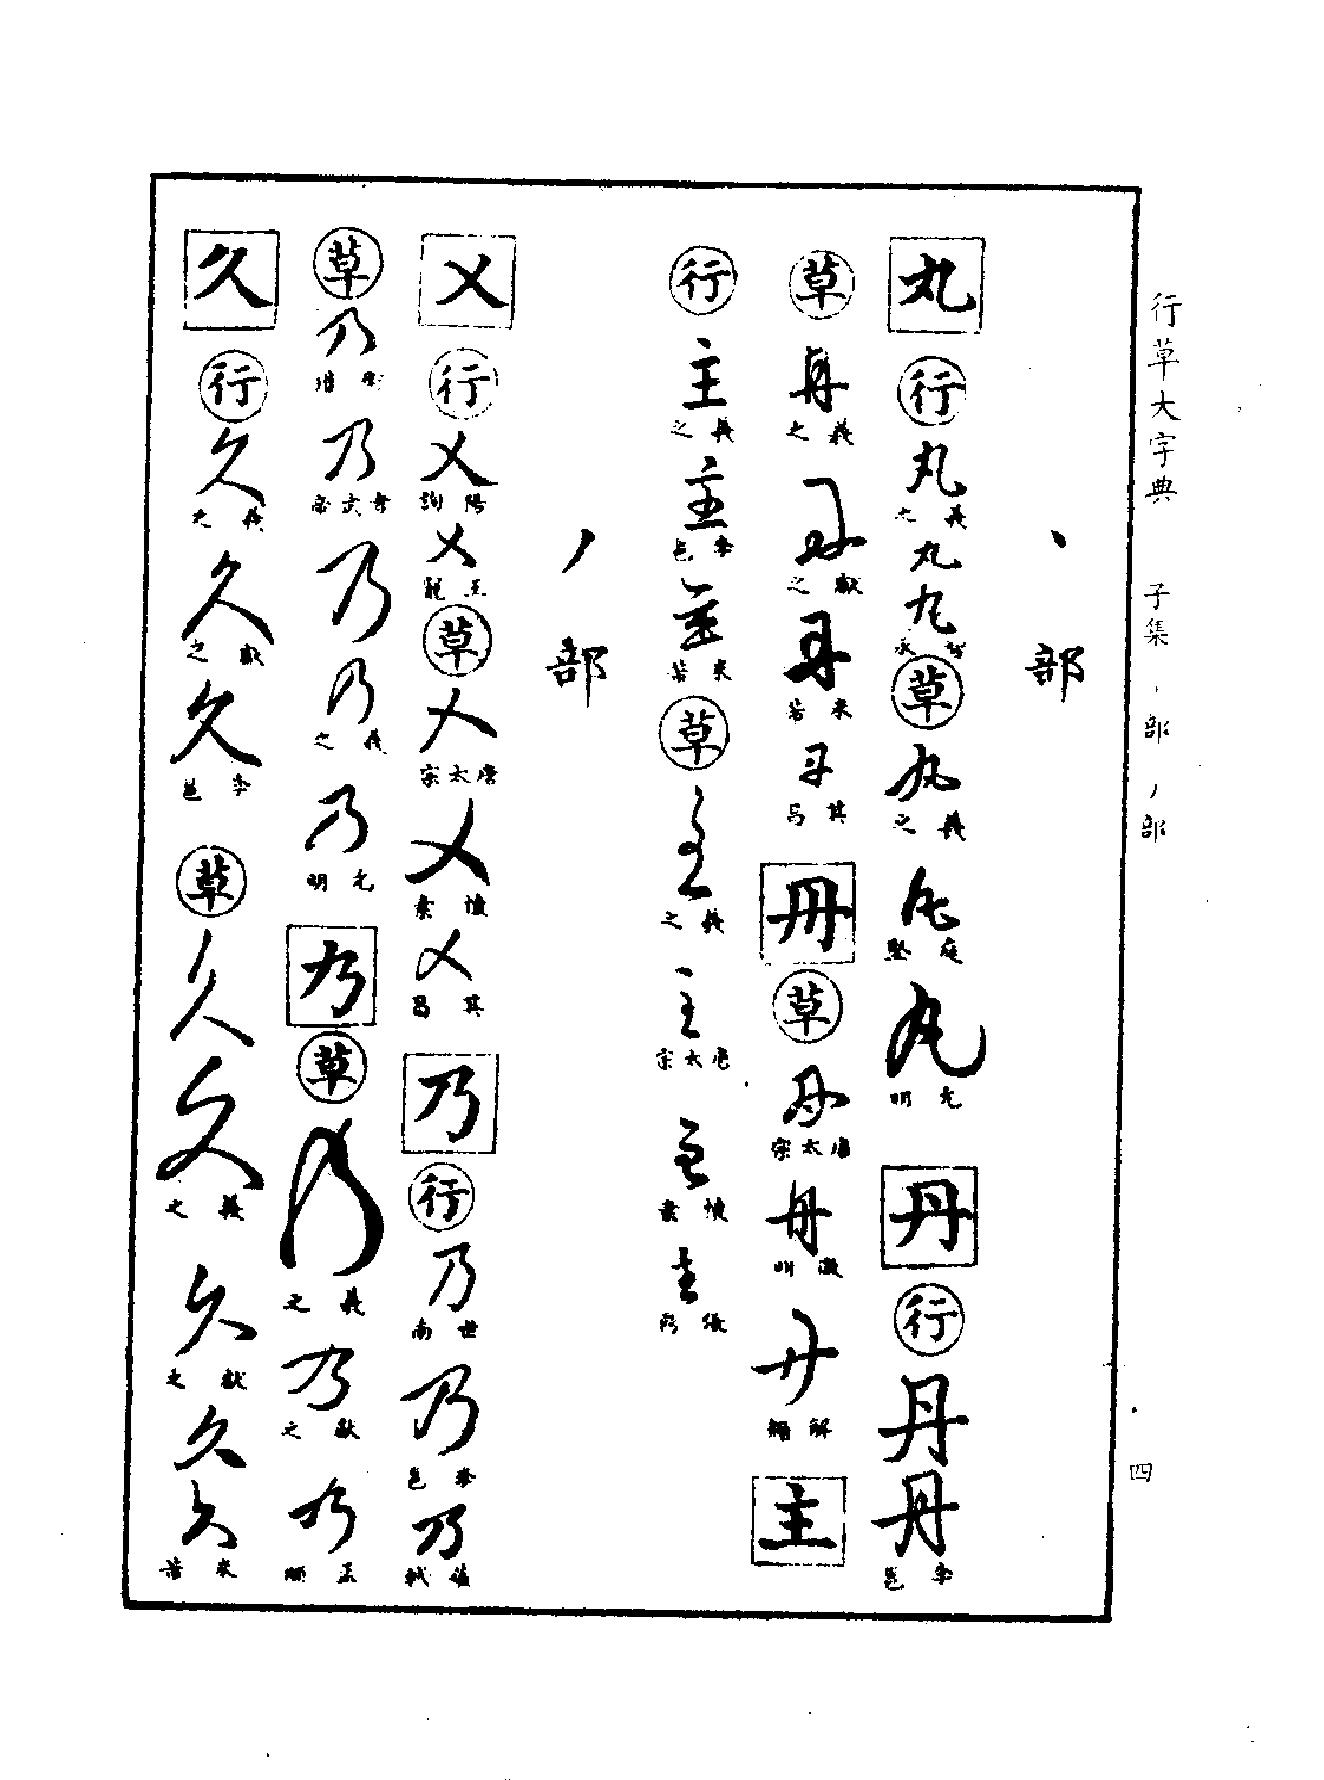 行草大字典 子集 丶部 丿部 四
丶部
丸 行 丸 羲之 丸 丸 智永 草 丸 羲之 丸 庭堅 丸 允明 丹 行 丹 丹 李邕
草 丹 羲之 丹 獻之 丹 米芾 丹 其昌 冊 草 冊 唐太宗 冊 冊 解縉 主
行 主 羲之 主 李邕 主 米芾 草 主 羲之 主 唐太宗 主 懷素 主
丿部
乂 行 乂 陽詢 乂 王寵 草 乂 唐太宗 乂 懷素 乂 其昌 乃 行 乃 世南 乃 李邕 乃 蘇軾
草 乃 乃 孝武帝 乃 乃 羲之 乃 允明 乃 草 乃 羲之 乃 獻之 乃 孟頫
久 行 久 羲之 久 獻之 久 李邕 草 久 久 羲之 久 獻之 久 久 米芾